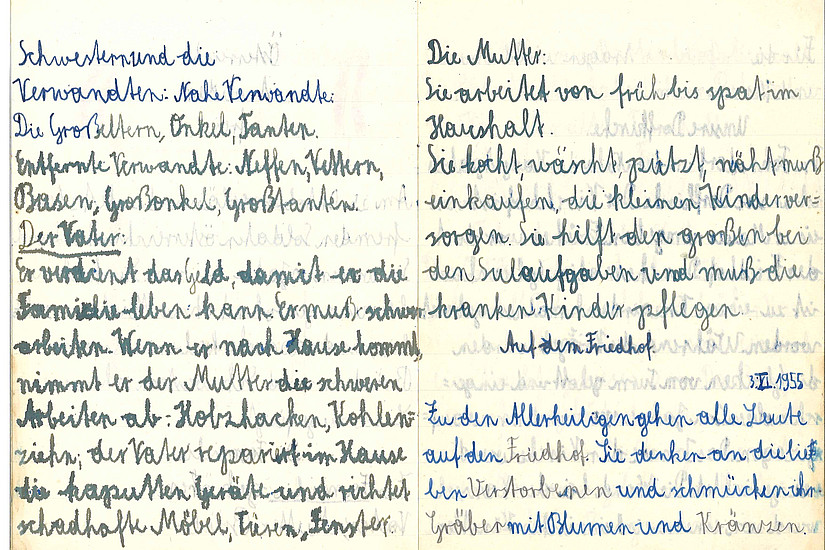 Schwestern und die
Verwandten: Nahe Verwandte:
Die Großeltern, Onkel, Tanten.
Entfernte Verwandte: Neffen, Vettern,
Basen, Großonkel, Großtanten.
Der Vater:
Er verdient das Geld, damit er die
Familie leben kann. Er muß schwer
arbeiten. Wenn er nach Hause kommt,
nimmt er der Mutter die schweren
Arbeiten ab: Holzhacken, Kohlen-
ziehn; der Vater repariert im Hause
die kaputten Geräte und richtet
schadhafte Möbel, Türen, Fenster.
Die Mutter:
Sie arbeitet von früh bis spät im
Haushalt.
Sie kocht wäscht putzt, näht muß
einkaufen, die kleinen Kinder ver-
sorgen. Sie hilft den großen bei
den Sulaufgaben und muß die
kranken Kinder pflegen.
Auf dem Friedhof.
3.XI.1955
Zu den Allerheiligen gehen alle Leute
auf den Friedhof. Sie denken an die lie
ben Verstorbenen und schmücken ihr
Gräber mit Blumen und Kränzen.